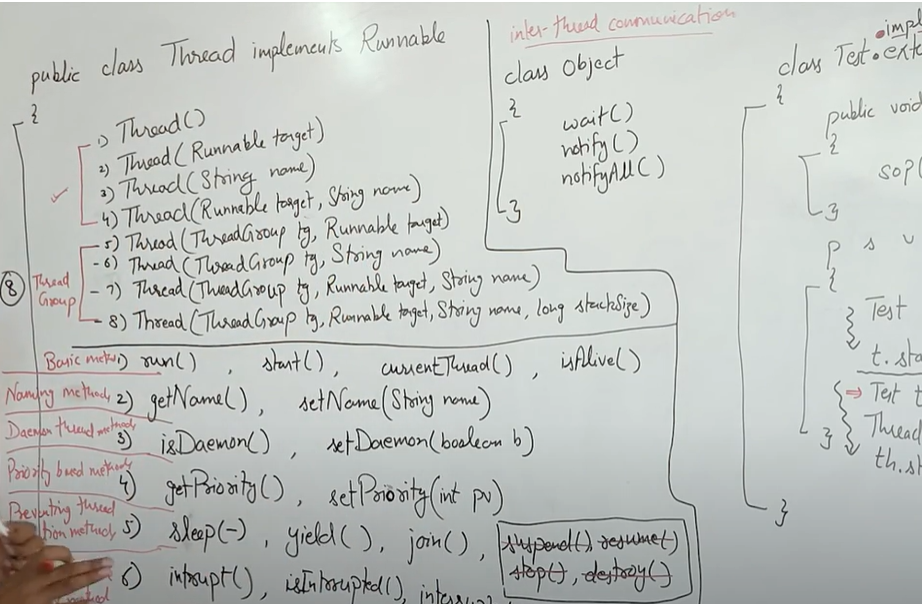 public class Thread implements Runnable
{
1) Thread()
2) Thread(Runnable target)
3) Thread(String name)
4) Thread(Runnable target, String name)
5) Thread(ThreadGroup tg, Runnable target)
6) Thread(ThreadGroup tg, String name)
7) Thread(ThreadGroup tg, Runnable target, String name)
8) Thread(ThreadGroup tg, Runnable target, String name, long stackSize)
8
Thread
Group
Basic
1) run(), start(), currentThread(), isAlive()
Naming methods
2) getName(), setName(String name)
Daemon thread methods
3) isDaemon(), setDaemon(boolean b)
Priority based methods
4) getPriority(), setPriority(int pv)
Preventing thread
methods
5) sleep(-), yield(), join(), suspend(), resume()
stop(), destroy()
6) intrupt(), isIntrupted(),
inter-thread communication
class Object
{
wait()
notify()
notifyAll()
}
impl
class Test
{
public void
{
sop(
}
p s v
{
Test
t.sta
⇒ Test t
Thread
th.st
}
}